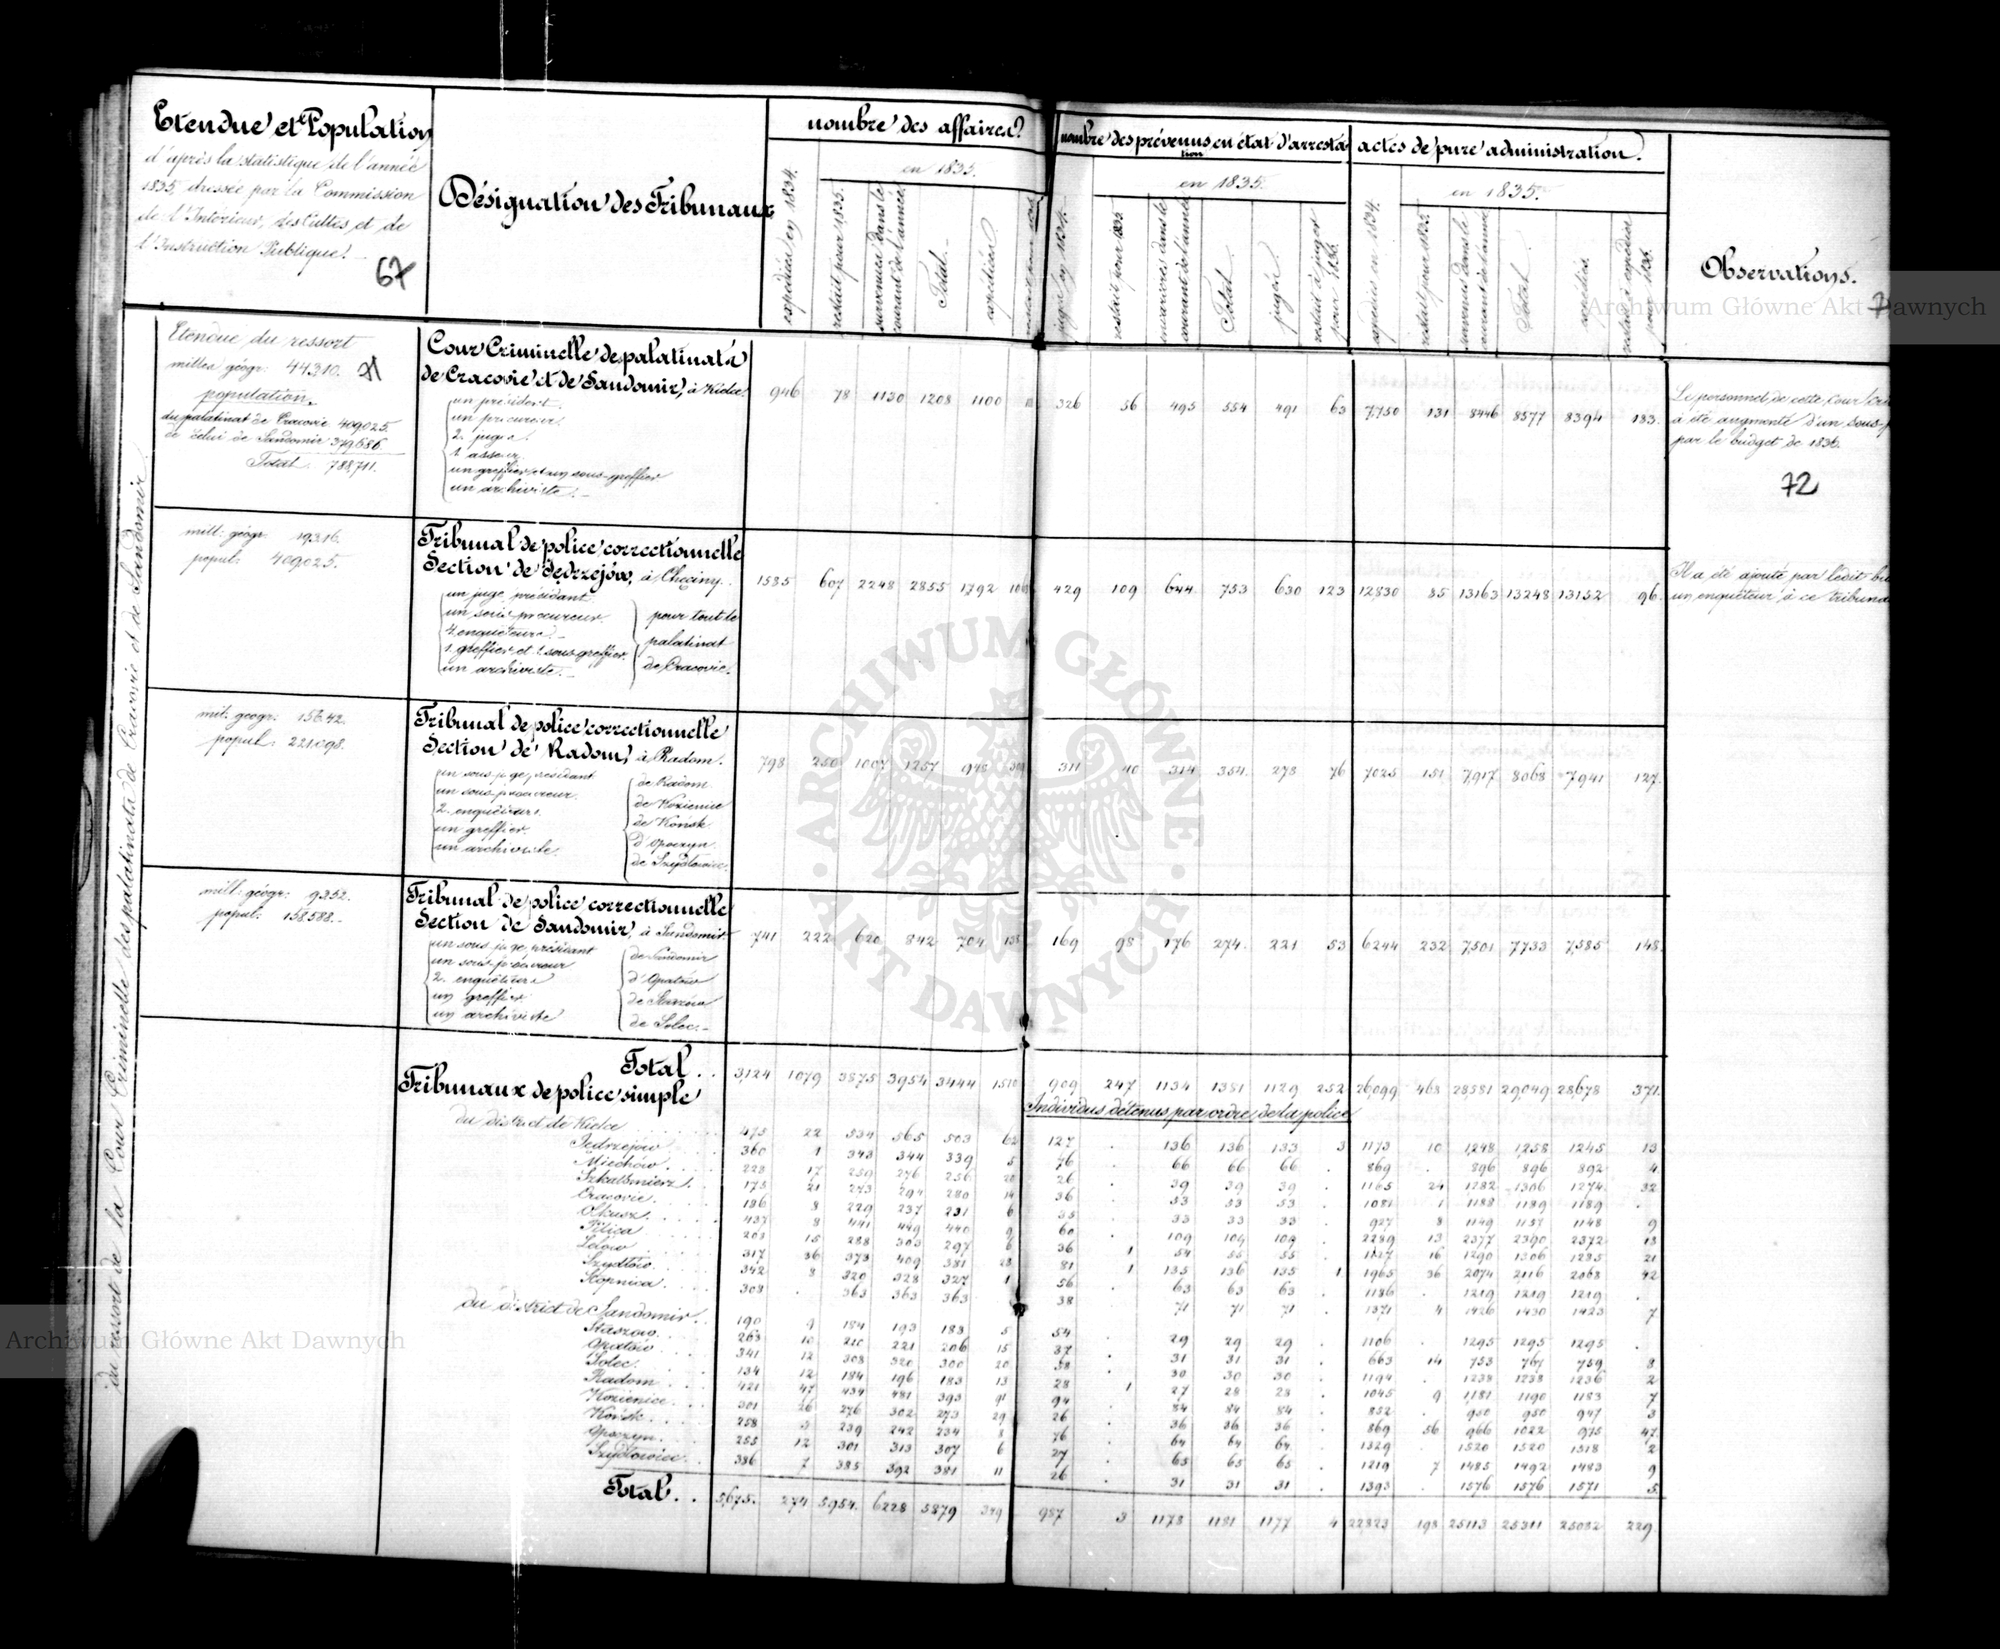 Etendue et Population
d'après la statistique de l'année
1835, dressée par la Commission
de l'Intérieur, des Cultes et de
l'Instruction Publique.
67
Désignation des Tribunaux
nombre des affaires
en 1835.
expédiées en 1834.
restait pour 1835.
survenues dans le courant de l'année
Total.
expédiées
nombre des prévenus en état d'arrestation
en 1835.
jugés en 1834.
restait pour 1835
courant de l'année
Total.
jugés
restait à juger pour 1836.
actes de pure administration.
en 1835.
expédiés en 1834.
restait pour 1835.
survenus dans le courant de l'année
Total.
expédiés
restait à expédier pour 1836.
Observations.
du ressort de la Cour Criminelle des palatinats de Cracovie et de Sandomir
Etendue du ressort
milles géogr: 443,10.
population.
du palatinat de Cracovie 409025.
de celui de Sandomir 379,686.
Total. 788,711.
Cour Criminelle des palatinats
de Cracovie et de Sandomir, à Kielce.
un président.
un procureur.
2. juges.
1. assesr.
un greffier et un sous-greffier
un archiviste.
946 78 1130 1208 1100
326 56 495 554 491 63
7,750 131 8446 8577 8394 183.
Le personnel de cette Cour
a été augmenté d'un sous-
par le budget de 1836.
72
mill: géogr. 193,16.
popul: 409025.
Tribunal de police correctionnelle
Section de Jędrzejów, à Chęciny.
un juge présidant.
un sous procureur.
4. enquêteurs.
1. greffier et 1. sous greffier.
un archiviste.
pour tout le
palatinat
de Cracovie.
1585 607 2248 2855 1792 1063
429 109 644 753 630 123
12,830 85 13163 13248 13152 96.
Il a été ajouté par l'édit
un enquêteur à ce tribunal
mil: géogr: 156,42.
popul: 221,098.
Tribunal de police correctionnelle
Section de Radom, à Radom.
un sous-juge présidant
un sous-procureur.
2. enquêteurs.
un greffier.
un archiviste.
de Radom
de Kozienice
de Końsk
d'Opoczyn
de Szydłowiec.
798 250 1007 1257 948 309
311 40 314 354. 278 76
7025 151 7,917 8068 7941 127.
mill: géogr: 93,52.
popul: 158,588.
Tribunal de police correctionnelle
Section de Sandomir, à Sandomir.
un sous juge présidant
un sous-procureur
2. enquêteurs
un greffier
un archiviste
de Sandomir
d'Opatów
de Staszów
de Solec.
741 222 620 842 704 138
169 98 176 274. 221 53
6244 232 7,501 7733 7,585 148.
Total..
3,124 1079 3875 3954 3444 1510
909 247 1134 1381 1129 252
26,099 468 28581 29,049 28,678 371.
Tribunaux de police simple
Individus détenus par ordre de la police
du district de Kielce
475 22 534 565 503 62 127 . 136 136 133 3 1173 10 1,248 1,258 1245 13
Jędrzejów
360 1 343 344 339 5 76 . 66 66 66 . 869 . 896 896 892 4
Miechów
228 17 259 276 256 20 26 . 39 39 39 . 1165 24 1282 1306 1274 32
Szkalbmierz
173 21 273 294 280 14 36 . 53 53 53 . 1081 1 1188 1189 1189
Cracovie
196 8 229 237 231 6 35 . 33 33 33 . 927 8 1149 1157 1148 9
Olkusz
437 8 441 449 440 9 60 . 109 109 109 . 2289 13 2377 2390 2372 13
Pilica
203 15 288 303 297 6 36 1 54 55 55 . 16 1290 1306 1285 21
Lelów
317 36 373 409 381 28 81 1 135 136 135 1 1965 36 2074 2116 2068 42
Szydłów
342 8 320 328 327 1 56 . 63 63 63 . 1186 . 1219 1219 1219
Kopnica
303 . 363 363 363 38 . 71 71 71 . 1371 4 1426 1430 1423 7
du district de Sandomir
190 9 184 193 188 5 54 . 29 29 29 . 1106 . 1295 1295 1295
Staszów
263 10 210 221 206 15 37 . 31 31 31 . 663 14 753 767 759 8
Opatów
341 12 308 320 300 20 38 . 30 30 30 . 1194 . 1238 1238 1236 2
Solec
134 12 184 196 183 13 28 1 27 28 28 . 1045 9 1181 1190 1183 7
Radom
421 47 434 481 393 91 94 . 84 84 84 . 852 . 950 950 947 3
Kozienice
301 26 276 302 273 29 26 . 36 36 36 . 869 56 966 1022 975 47
Końsk
258 3 239 242 234 8 76 . 64 64 64 . 1329 . 1520 1520 1518 2
Opoczyn
255 12 301 313 307 6 27 . 65 65 65 . 1219 7 1485 1492 1483 9
Szydłowiec
386 7 385 392 381 11 26 . 31 31 31 . 1393 . 1576 1576 1571 5
Total..
5,675. 274 5,954. 6228 5879 349
987 3 1178 1181 1177 4
22823 198 25113 25311 25082 229
Archiwum Główne Akt Dawnych
ARCHIWUM GŁÓWNE AKT DAWNYCH
Archiwum Główne Akt Dawnych